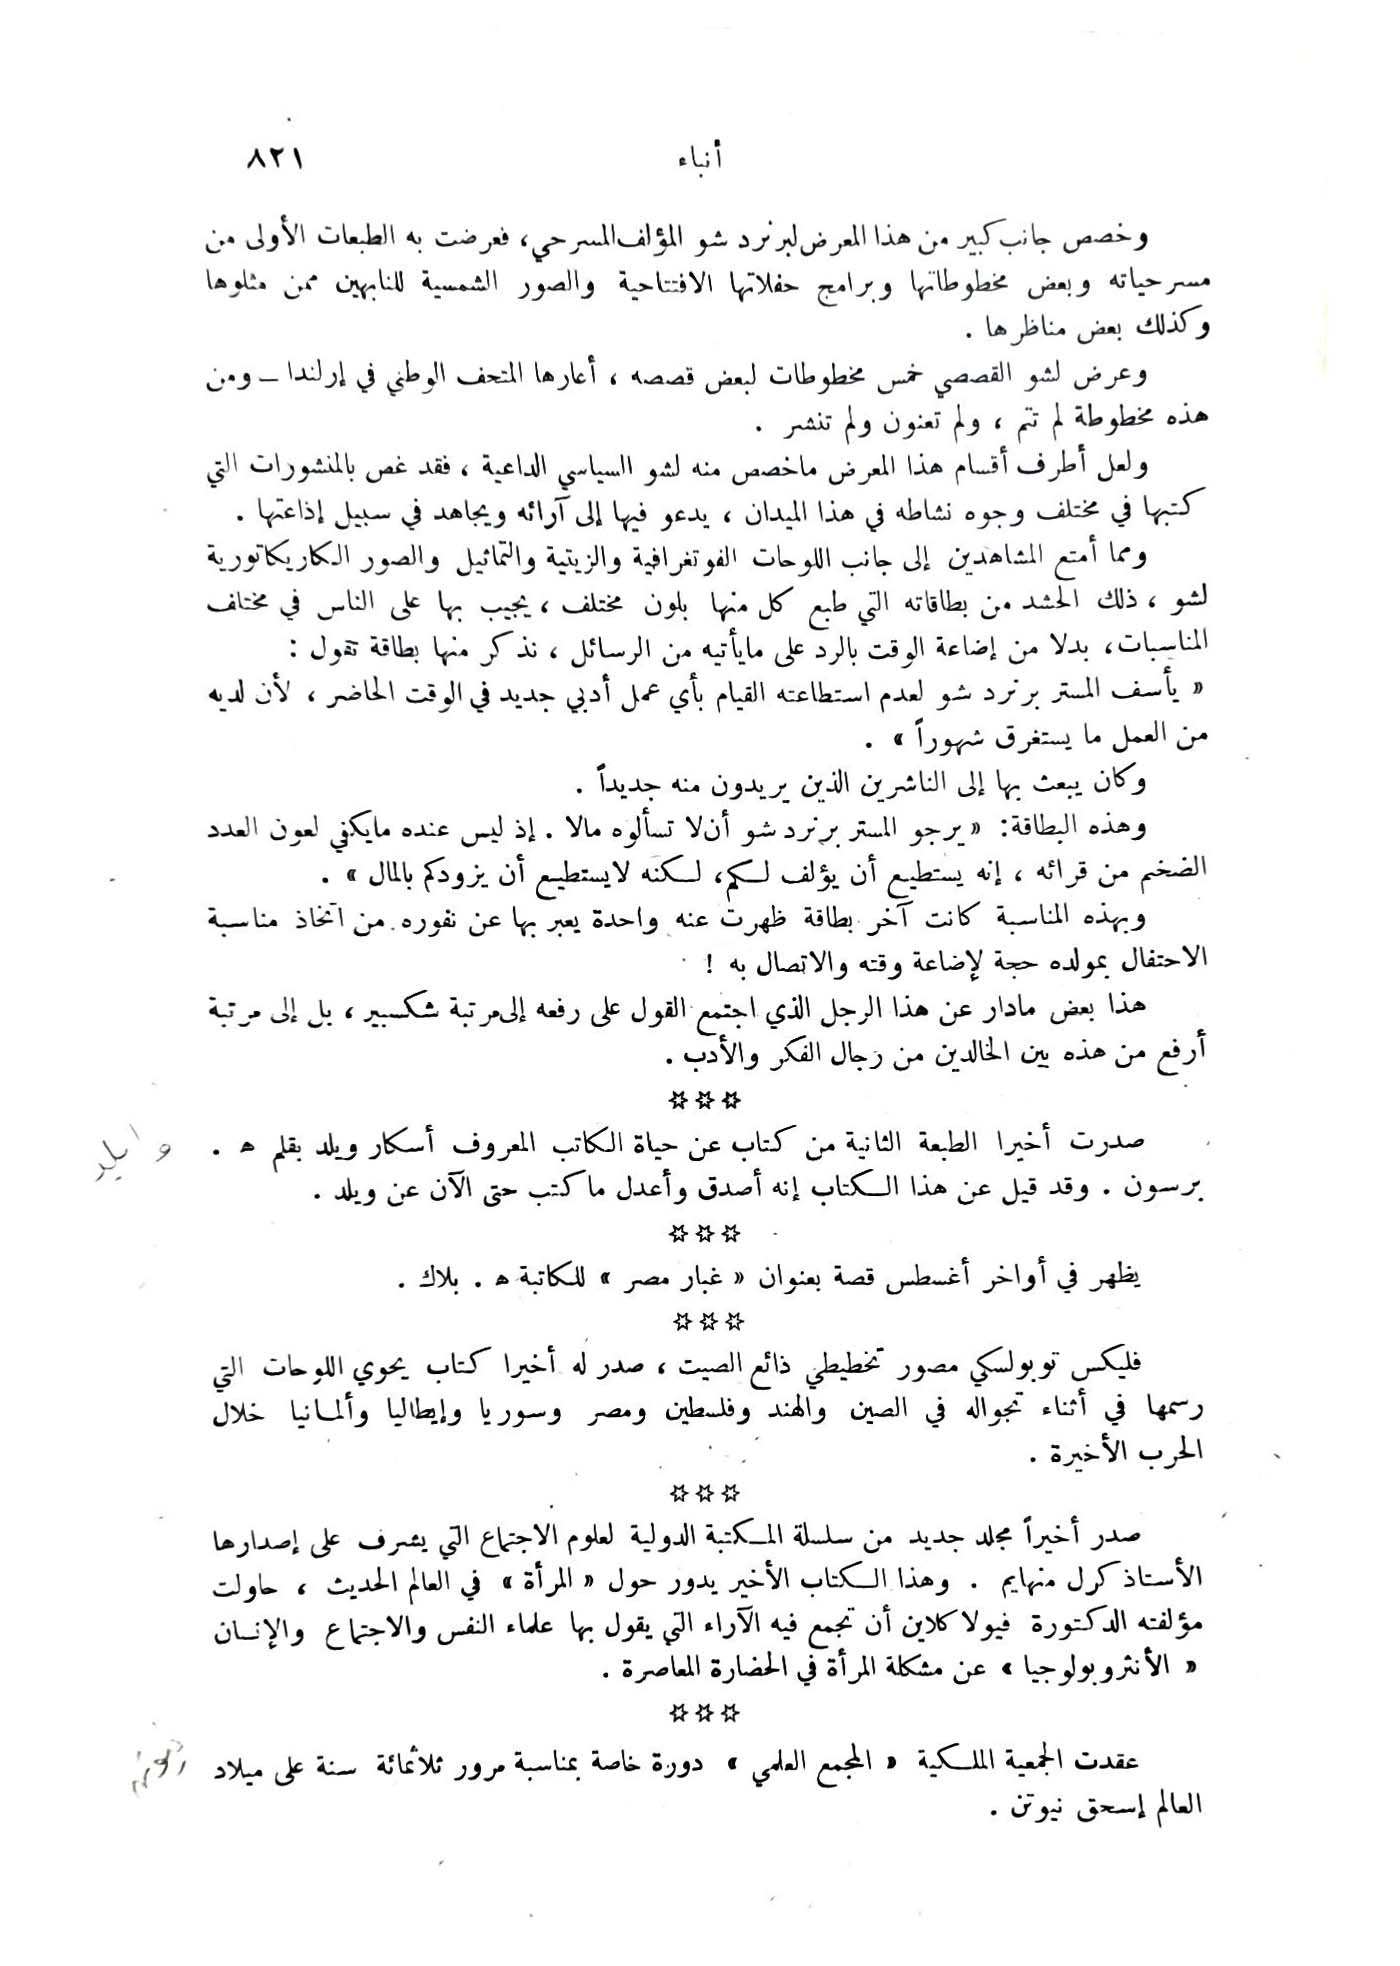 أنباء
٨٢١
وخصص جانب كبير من هذا المعرض لبرنرد شو المؤلف المسرحي، فعرضت به الطبعات الأولى من
مسرحياته وبعض مخطوطاتها وبرامج حفلاتها الافتتاحية والصور الشمسية للنابهين ممن مثلوها
وكذلك بعض مناظرها .
وعرض لشو القصصي خمس مخطوطات لبعض قصصه ، أعارها المتحف الوطني في إرلندا ــ ومن
هذه مخطوطة لم تتم ، ولم تعنون ولم تنشر .
ولعل أطرف أقسام هذا المعرض ماخصص منه لشو السياسي الداعية ، فقد غص بالمنشورات التي
كتبها في مختلف وجوه نشاطه في هذا الميدان ، يدعو فيها إلى آرائه ويجاهد في سبيل إذاعتها .
ومما أمتع المشاهدين إلى جانب اللوحات الفوتغرافية والزيتية والتماثيل والصور الكاريكاتورية
لشو ، ذلك الحشد من بطاقاته التي طبع كل منها بلون مختلف ، يجيب بها على الناس في مختلف
المناسبات، بدلا من إضاعة الوقت بالرد على مايأتيه من الرسائل ، نذكر منها بطاقة تقول :
« يأسف المستر برنرد شو لعدم استطاعته القيام بأي عمل أدبي جديد في الوقت الحاضر ، لأن لديه
من العمل ما يستغرق شهوراً » .
وكان يبعث بها إلى الناشرين الذين يريدون منه جديداً .
وهذه البطاقة: « يرجو المستر برنرد شو أن لا تسألوه مالا . إذ ليس عنده مايكفي لعون العدد
الضخم من قرائه ، إنه يستطيع أن يؤلف لكم، لكنه لايستطيع أن يزودكم بالمال » .
وبهذه المناسبة كانت آخر بطاقة ظهرت عنه واحدة يعبر بها عن نفوره من اتخاذ مناسبة
الاحتفال بمولده حجة لإضاعة وقته والاتصال به !
هذا بعض مادار عن هذا الرجل الذي اجتمع القول على رفعه إلى مرتبة شكسبير ، بل إلى مرتبة
أرفع من هذه بين الخالدين من رجال الفكر والأدب .
✡✡✡
صدرت أخيرا الطبعة الثانية من كتاب عن حياة الكاتب المعروف أسكار ويلد بقلم ﻫ .
وايلد
برسون . وقد قيل عن هذا الكتاب إنه أصدق وأعدل ما كتب حتى الآن عن ويلد .
✡✡✡
يظهر في أواخر أغسطس قصة بعنوان « غبار مصر » للكاتبة ﻫ . بلاك .
✡✡✡
فليكس توبولسكي مصور تخطيطي ذائع الصيت ، صدر له أخيرا كتاب يحوي اللوحات التي
رسمها في أثناء تجواله في الصين والهند وفلسطين ومصر وسوريا وإيطاليا وألمانيا خلال
الحرب الأخيرة .
✡✡✡
صدر أخيراً مجلد جديد من سلسلة المكتبة الدولية لعلوم الاجتماع التي يشرف على إصدارها
الأستاذ كرل منهايم . وهذا الكتاب الأخير يدور حول « المرأة » في العالم الحديث ، حاولت
مؤلفته الدكتورة فيولا كلاين أن تجمع فيه الآراء التي يقول بها علماء النفس والاجتماع والإنسان
« الأنثروبولوجيا » عن مشكلة المرأة في الحضارة المعاصرة .
✡✡✡
عقدت الجمعية الملكية « المجمع العلمي » دورة خاصة بمناسبة مرور ثلاثمائة سنة على ميلاد
العالم إسحق نيوتن .